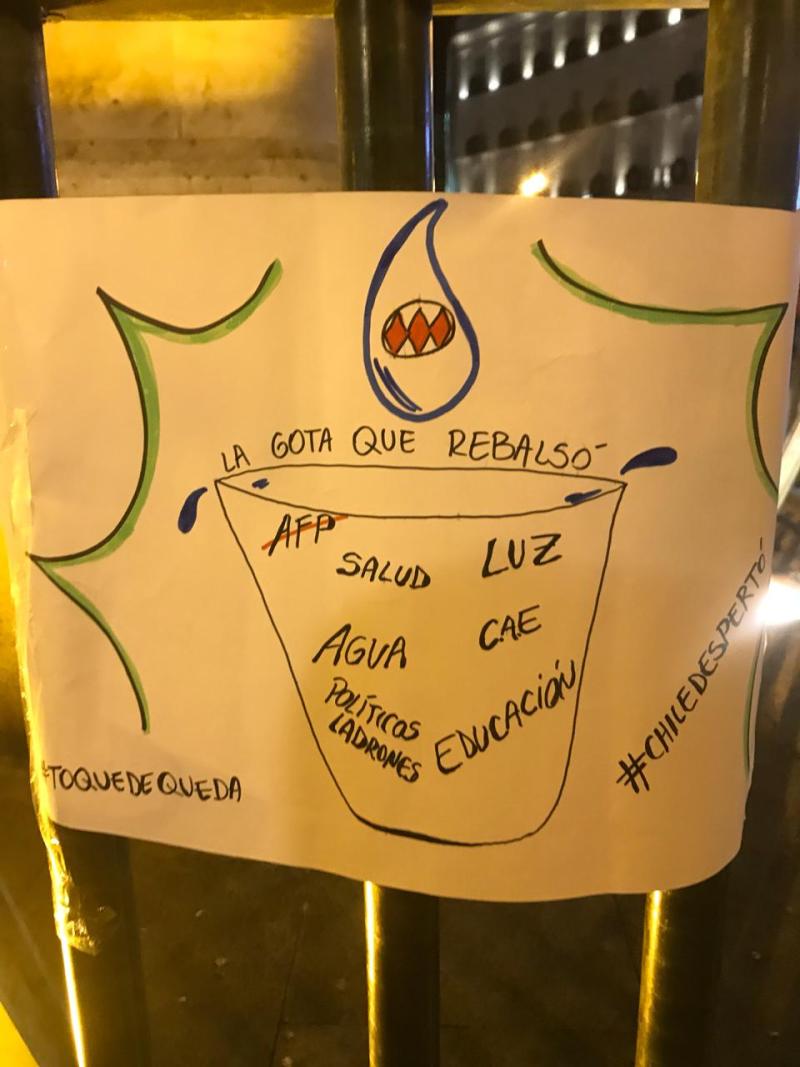 LA GOTA QUE REBALSÓ
AFP
SALUD
LUZ
AGUA
C.A.E
POLÍTICOS
LADRONES
EDUCACIÓN
#TOQUEDEQUEDA
#CHILEDESPERTÓ